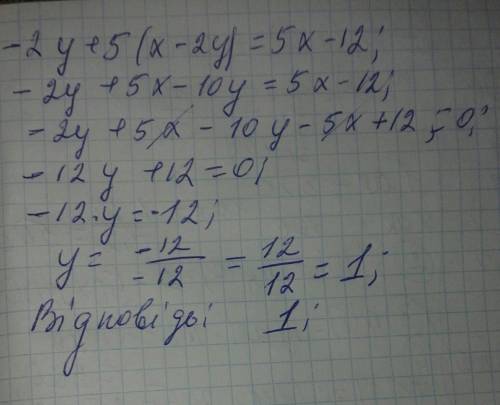 -2y+5(x-2y)=5x-12;
-2y+5x-10y=5x-12;
-2y+5x-10y-5x+12=0;
-12y+12=0;
-12·y=-12;
y= -12/-12 = 12/12 = 1;
Відповідь: 1;